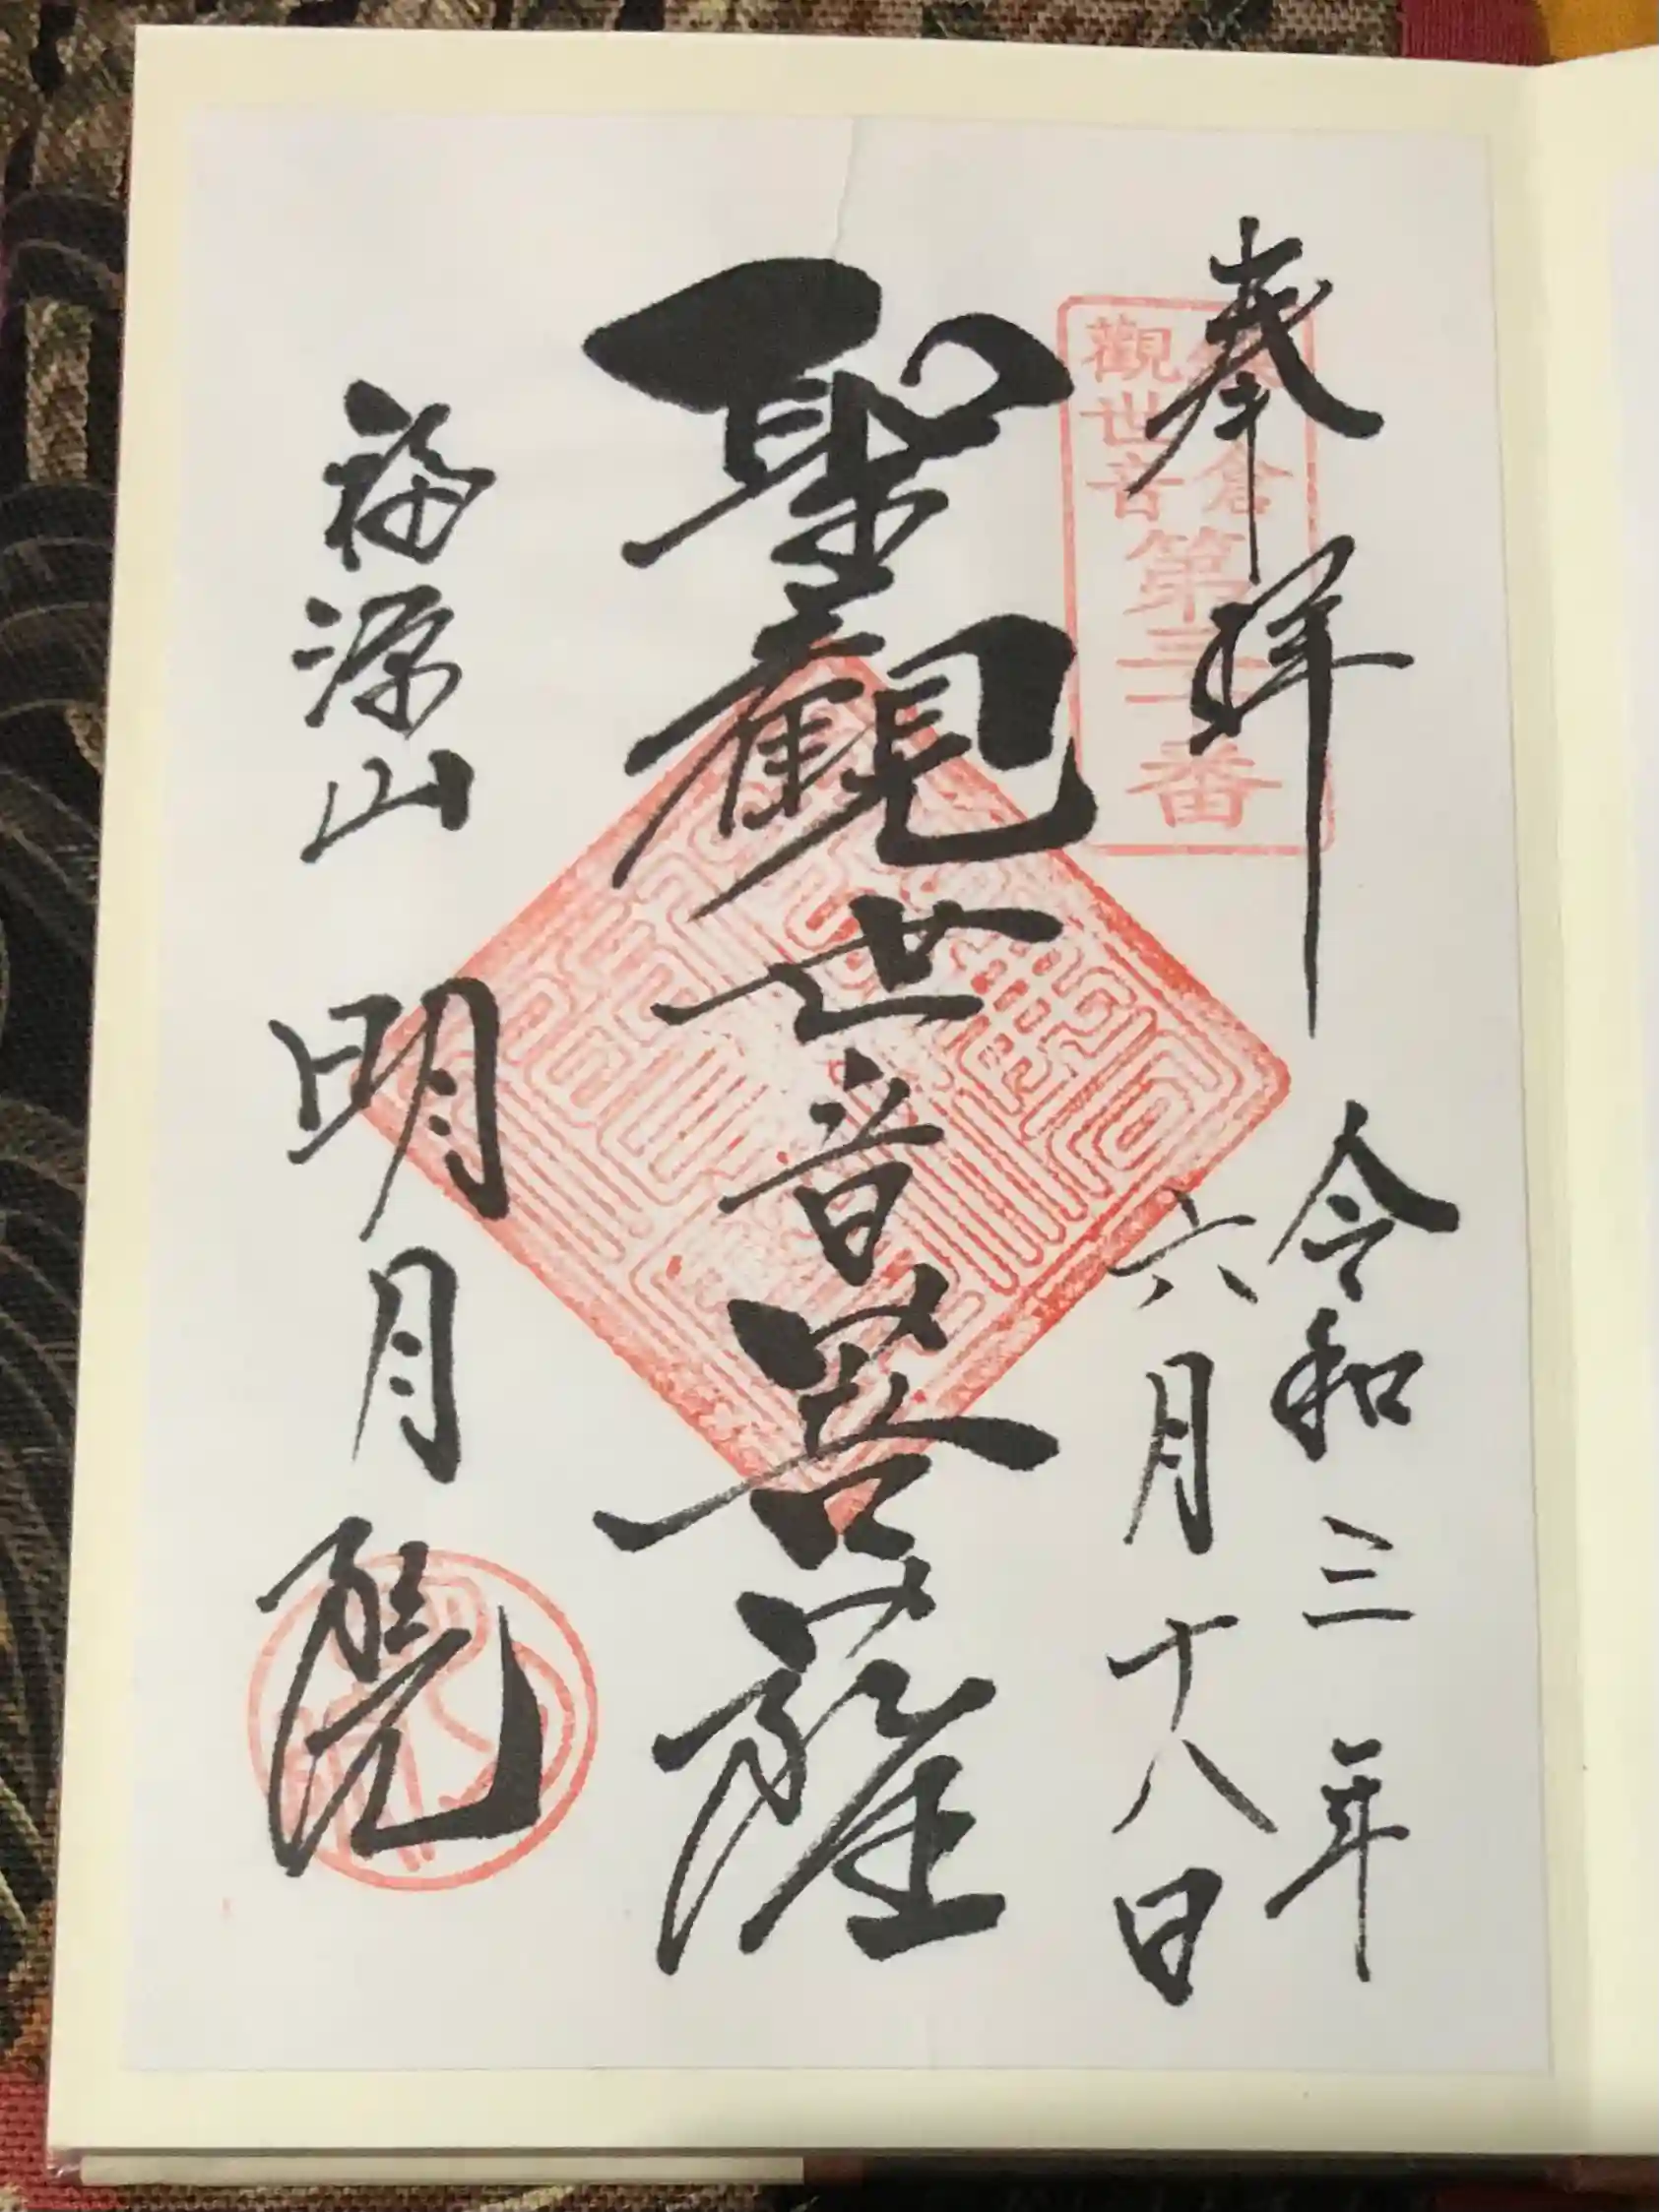 奉拝
令和三年
六月十八日
鎌倉
觀世音
第三十番
聖觀世音菩薩
福源山
明月院